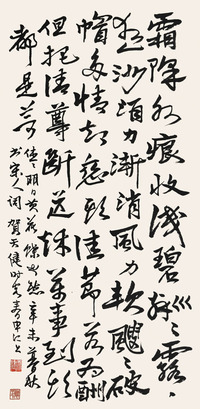 霜降水痕收淺碧鱗鱗露
遠洲酒力漸消風力軟颼颼破
帽多情却戀頭佳節若為酬
但把清尊斷送秋萬事到頭
都是夢
休休明日黃花蝶也愁辛未暮秋
書宋人詞賀天健時客春申江上